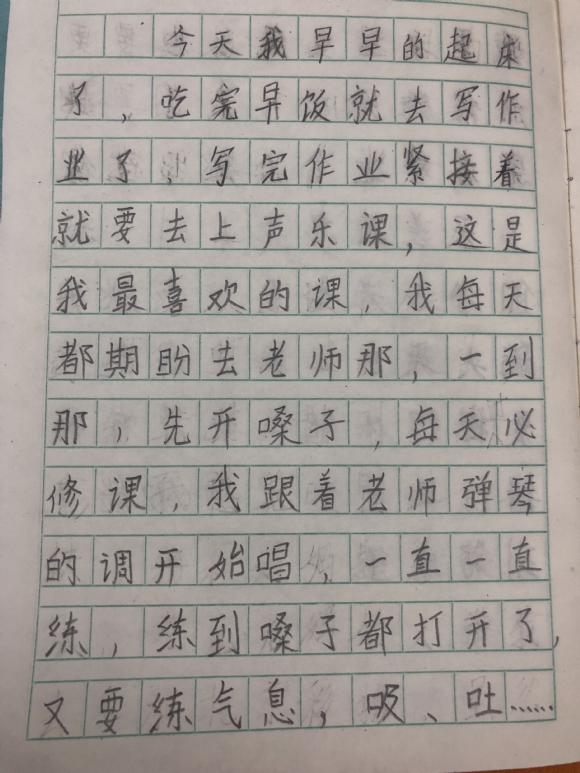 今天我早早的起床
了，吃完早饭就去写作
业了，写完作业紧接着
就要去上声乐课，这是
我最喜欢的课，我每天
都期盼去老师那，一到
那，先开嗓子，每天必
修课，我跟着老师弹琴
的调开始唱，一直一直
练，练到嗓子都打开了，
又要练气息，吸、吐……